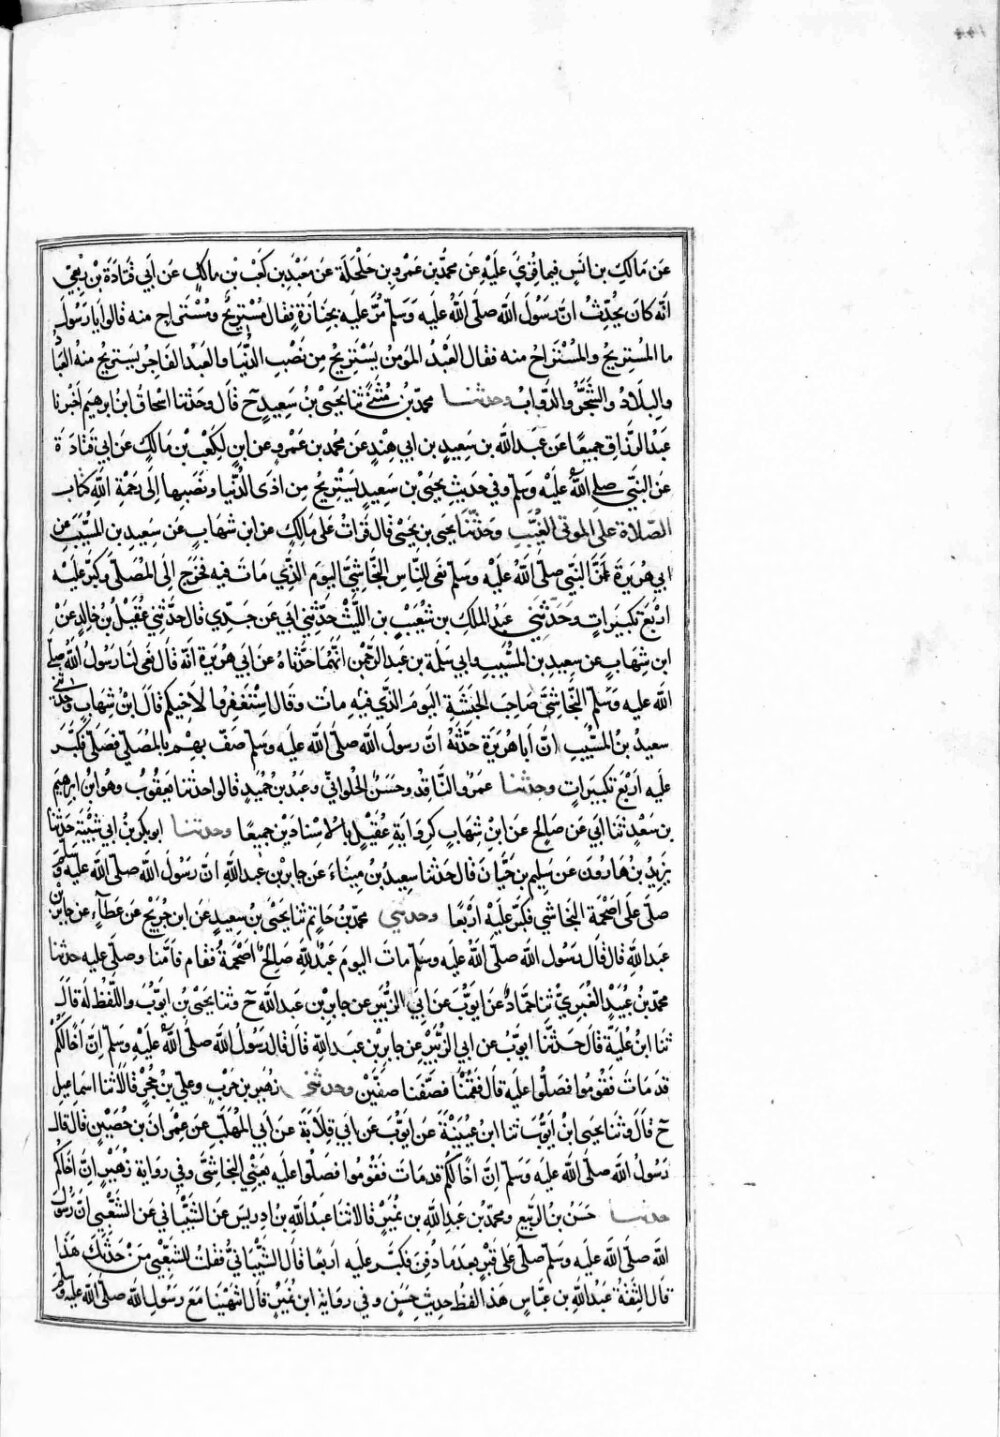 عن مالك بن انس فيما قرئ عليه عن محمد بن عمرو بن حلحلة عن معبد بن كعب بن مالك عن أبي قتادة بن ربعي
انه كان يحدث ان رسول الله صلى الله عليه وسلم مر عليه بجنازة فقال مستريح ومستراح منه قالوا يا رسول
ما المستريح والمستراح منه فقال العبد المؤمن يستريح من نصب الدنيا والعبد الفاجر يستريح منه العباد
والبلاد والشجر والدواب وحدثنا محمد بن مثنى ثنا يحيى بن سعيد ح قال وحدثنا اسحاق ابن ابرهيم أخبرنا
عبد الرزاق جميعا عن عبد الله بن سعيد بن ابي هند عن محمد بن عمرو عن ابن لكعب بن مالك عن ابي قتادة
عن النبي صلى الله عليه وسلم وفي حديث يحيى بن سعيد يستريح من اذى الدنيا ونصبها إلى رحمة الله كتاب
الصلاة على الموتى الغيب وحدثنا يحيى بن يحيى قال قرات على مالك عن ابن شهاب عن سعيد بن المسيب عن
ابي هريرة ان النبي صلى الله عليه وسلم نعى للناس النجاشي اليوم الذي مات فيه فخرج الى المصلى وكبر عليه
اربع تكبيرات وحدثني عبد الملك بن شعيب بن الليث حدثني ابي عن جدي قال حدثني عقيل بن خالد عن
ابن شهاب عن سعيد بن المسيب وابي سلمة بن عبد الرحمن انهما حدثاه عن ابي هريرة انه قال نعى لنا رسول الله صلى
الله عليه وسلم النجاشي صاحب الحبشة اليوم الذي فيه مات وقال استغفروا لاخيكم قال ابن شهاب وحدثني
سعيد بن المسيب ان أبا هريرة حدثه ان رسول الله صلى الله عليه وسلم صف بهم بالمصلى فصلى فكبر
عليه اربع تكبيرات وحدثنا عمرو الناقد وحسن الحلواني وعبد بن حميد قالوا حدثنا يعقوب وهو ابن ابرهيم
بن سعد ثنا ابي عن صالح عن ابن شهاب كرواية عقيل بالاسنادين جميعا وحدثنا ابو بكر بن ابي شيبة حدثنا
يزيد بن هارون عن سليم بن حيان قال حدثنا سعيد بن ميناء عن جابر بن عبد الله ان رسول الله صلى الله عليه وسلم
صلى على اصحمة النجاشي فكبر عليه اربعا وحدثني محمد بن حاتم ثنا يحيى بن سعيد عن ابن جريج عن عطاء عن جابر بن
عبد الله قال قال رسول الله صلى الله عليه وسلم مات اليوم عبد لله صالح اصحمة فقام فامنا وصلى عليه حدثنا
محمد بن عبيد الغبري ثنا حماد عن ايوب عن ابي الزبير عن جابر بن عبد الله ح وثنا يحيى بن ايوب واللفظ له قال
ثنا ابن علية قال حدثنا ايوب عن ابي الزبير عن جابر بن عبد الله قال قال رسول الله صلى الله عليه وسلم ان أخا لكم
قد مات فقوموا فصلوا عليه قال فقمنا فصفنا صفين وحدثني زهير بن حرب وعلي بن حجر قالا ثنا اسماعيل
ح قال وثنا يحيى ابن ايوب ثنا ابن عيينة عن ايوب عن ابي قلابة عن ابي المهلب عن عمران بن حصين قال قال
رسول الله صلى الله عليه وسلم ان اخا لكم قد مات فقوموا فصلوا عليه يعني النجاشي وفي رواية زهير ان اخاكم
حدثنا حسن بن الربيع ومحمد بن عبد الله بن نمير قالا ثنا عبد الله بن ادريس عن الشيباني عن الشعبي ان رسول
الله صلى الله عليه وسلم صلى على قبر بعد ما دفن فكبر عليه اربعا قال الشيباني فقلت للشعبي من حدثك هذا
قال الثقة عبد الله بن عباس هذا لفظ حديث حسن وفي رواية ابن نمير قال انتهينا مع رسول الله صلى الله عليه وسلم